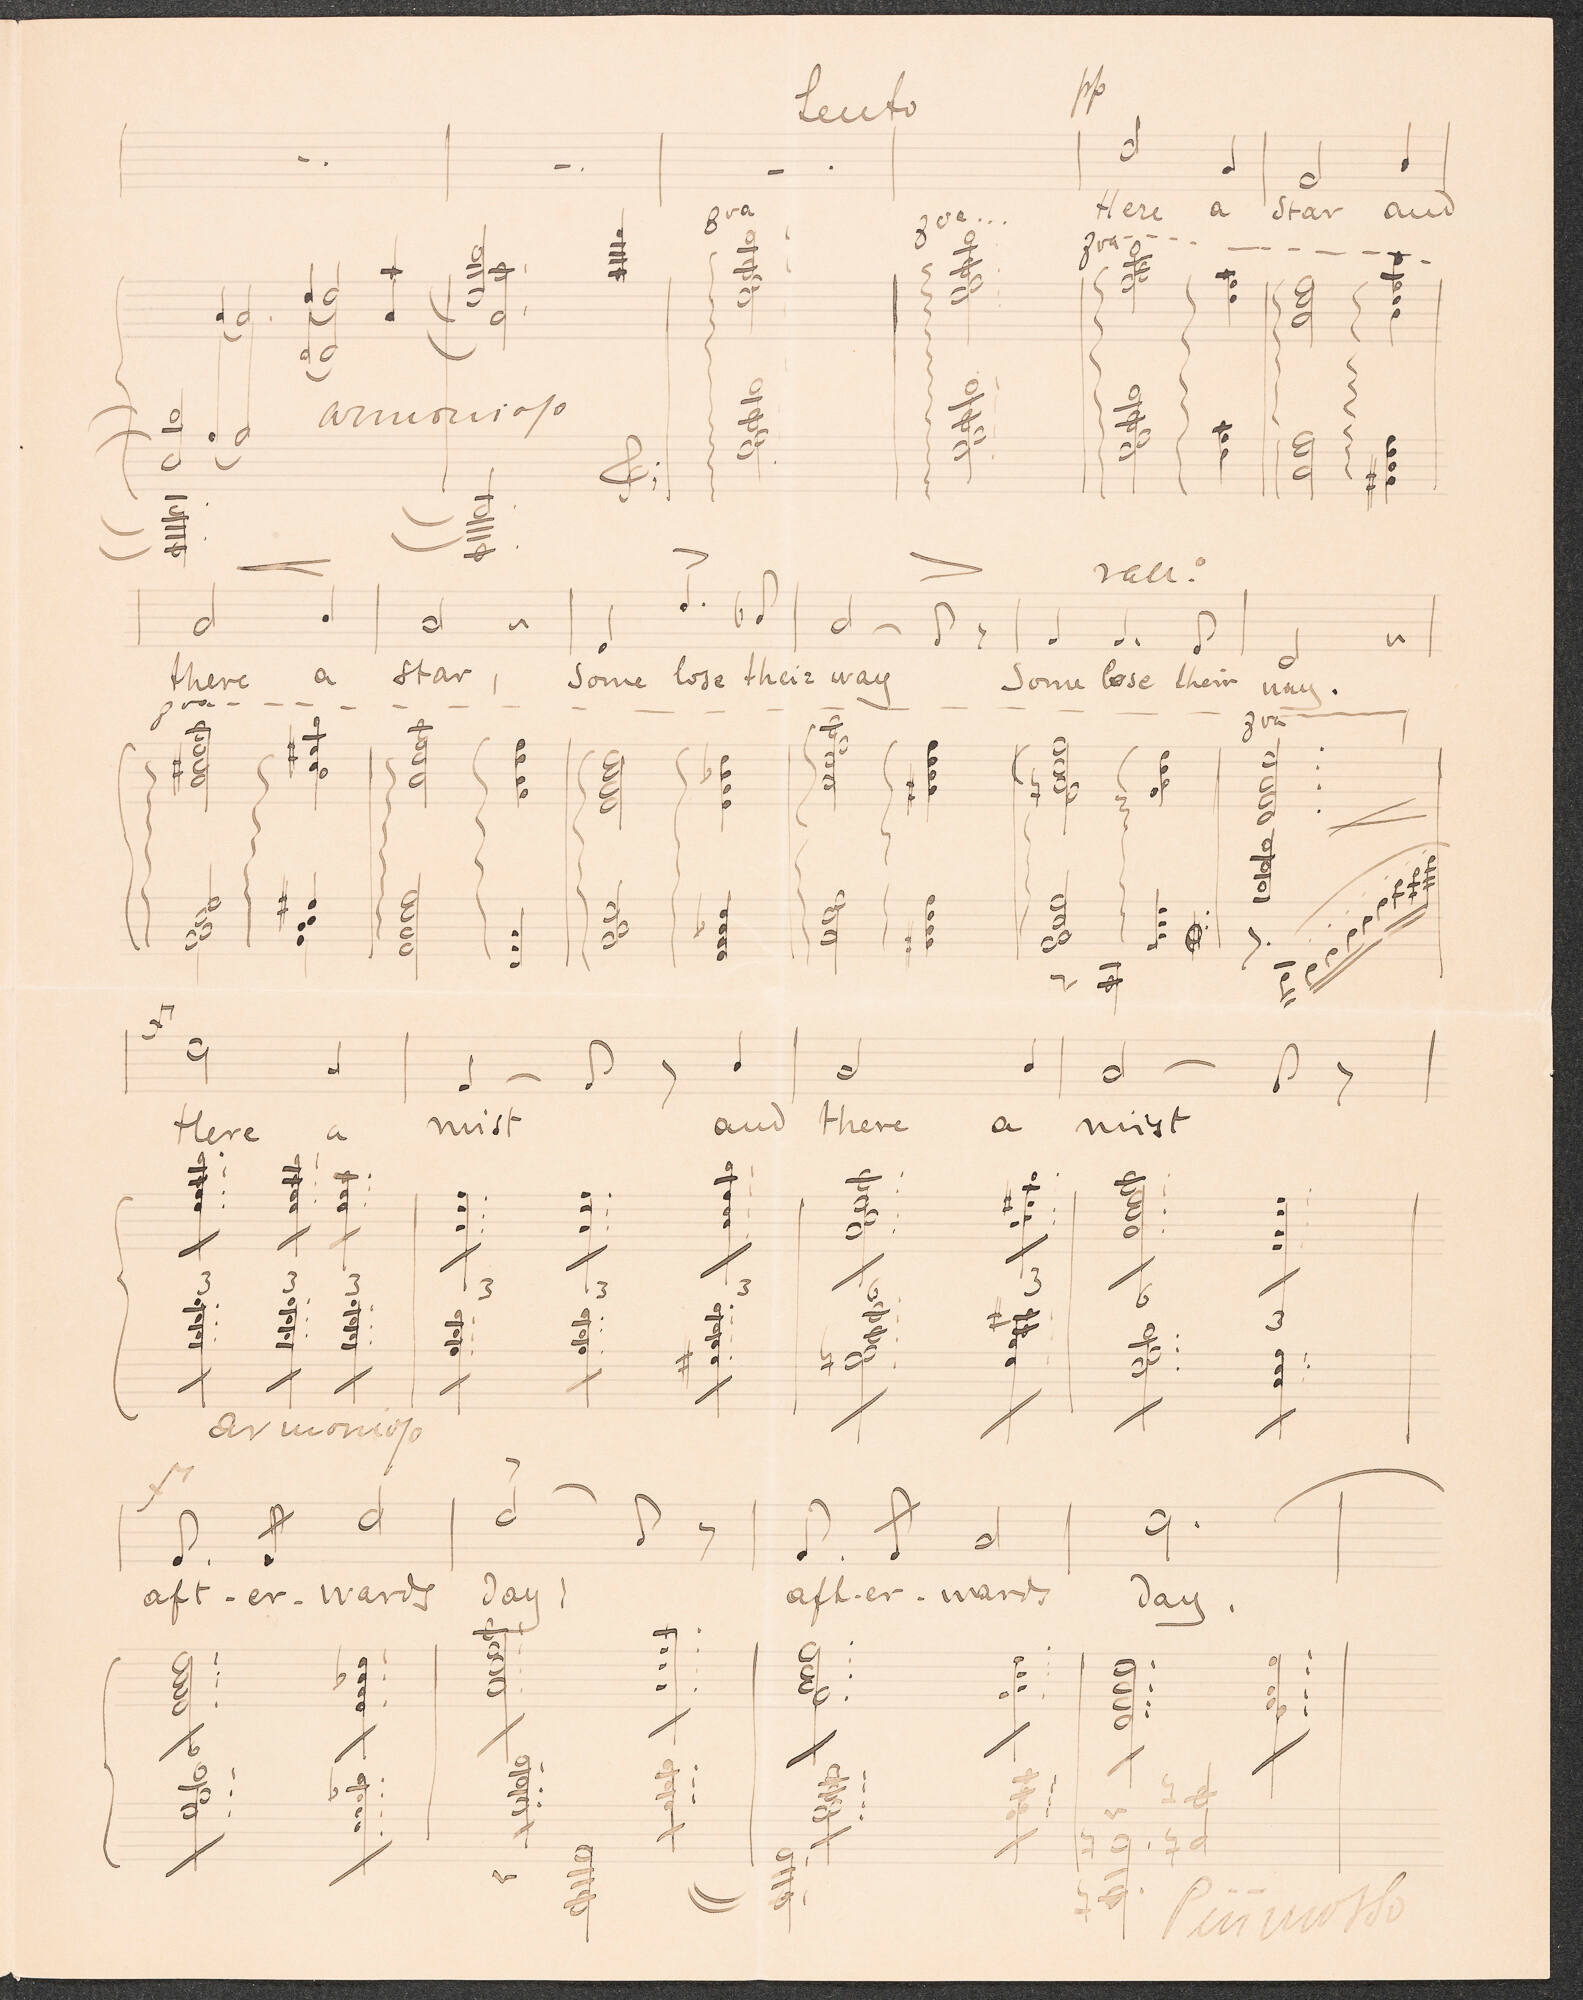 Lento pp
Here a star and
8va 8va... 8va
armonioso
rall:
there a star, Some lose their way Some lose their way.
8va 8va
Here a mist and there a mist
3 3 3 3 3 3 6 3 6 3
armonioso
f
aft-er-wards day! aft-er-wards day.
6
Più mosso